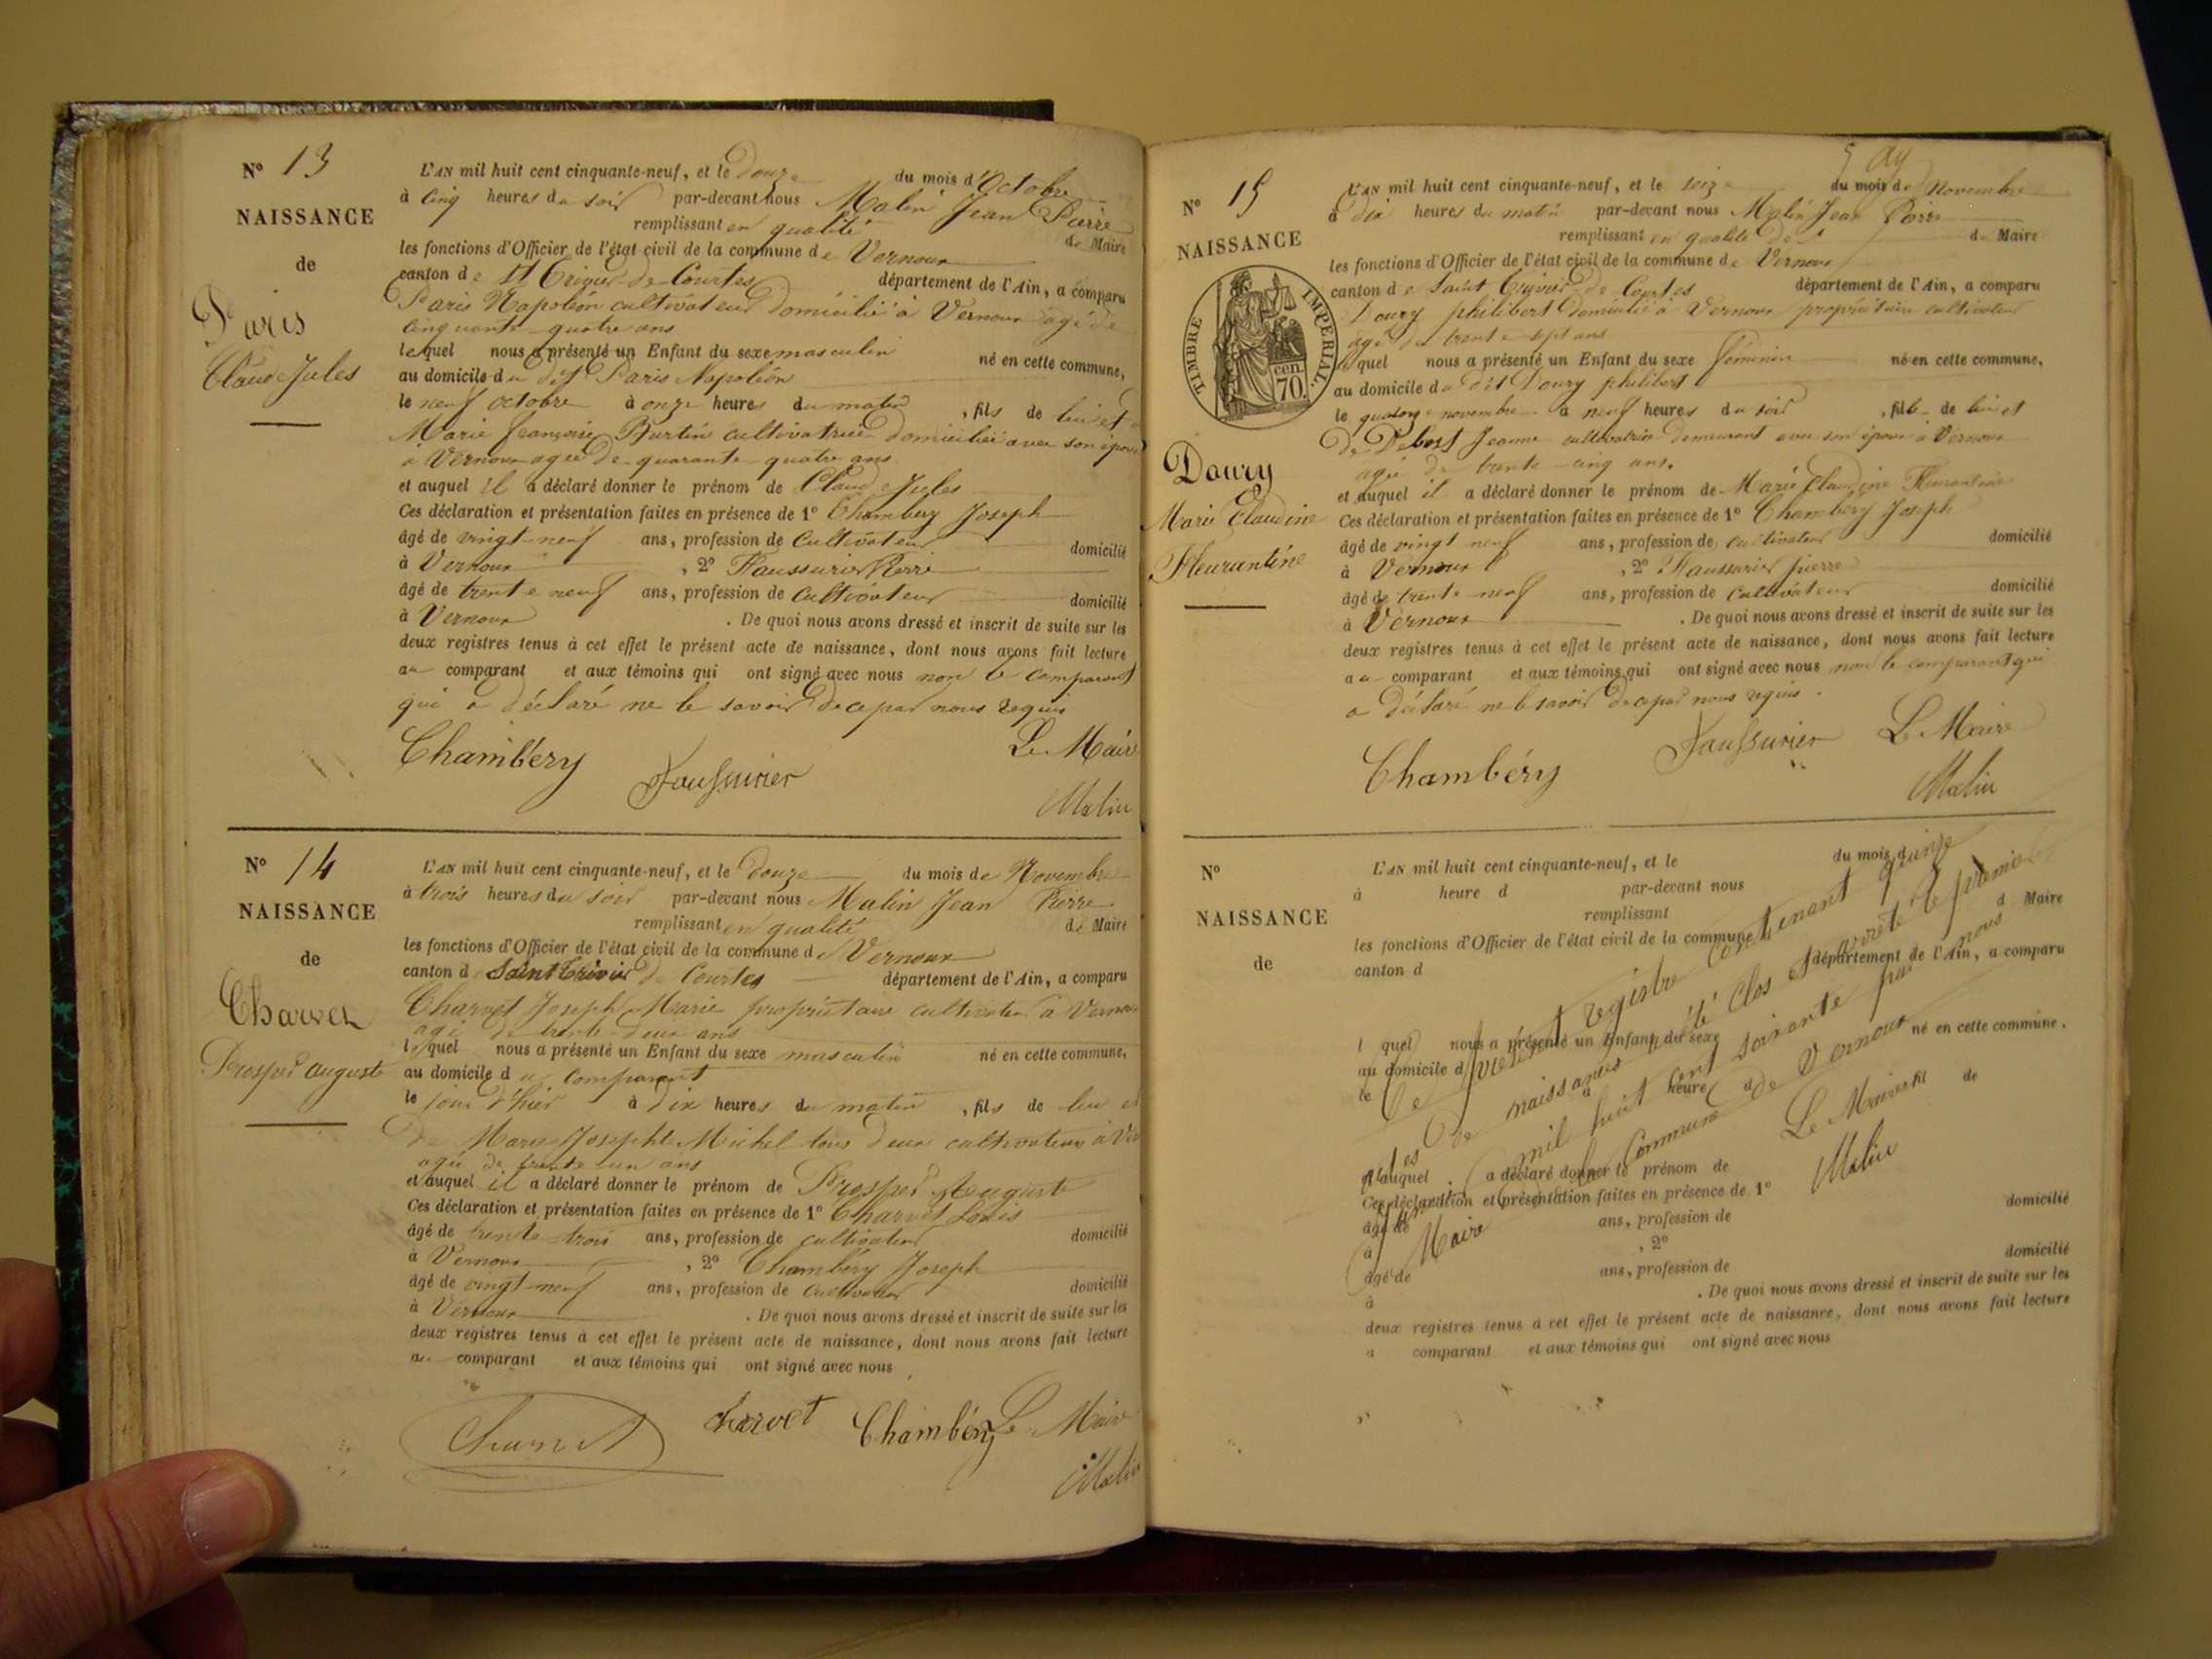 N° 13
NAISSANCE
de
Paris
Claude Jules
L'AN mil huit cent cinquante-neuf, et le douze du mois d'Octobre
à cinq heures du soir par-devant nous Malin Jean Pierre
remplissant en qualité de Maire
les fonctions d'Officier de l'état civil de la commune de Vernoux
canton de St Trivier de Courtes département de l'Ain, a comparu
Paris Napoléon cultivateur domicilié à Vernoux agé de
cinquante-quatre ans
lequel nous a présenté un Enfant du sexe masculin né en cette commune,
au domicile du dit Paris Napoléon
le neuf octobre à onze heures du matin, fils de lui et
Marie Françoise Burtin cultivatrice domiciliée avec son époux
à Vernoux agée de quarante-quatre ans
et auquel il a déclaré donner le prénom de Claude Jules
Ces déclaration et présentation faites en présence de 1° Chambéry Joseph
âgé de vingt-neuf ans, profession de Cultivateur domicilié
à Vernoux, 2° Faussurier Pierre
âgé de trente neuf ans, profession de Cultivateur domicilié
à Vernoux. De quoi nous avons dressé et inscrit de suite sur les
deux registres tenus à cet effet le présent acte de naissance, dont nous avons fait lecture
au comparant et aux témoins qui ont signé avec nous non le comparant
qui a déclaré ne le savoir de ce par nous requis
Chambéry Faussurier Le Maire
Malin
N° 14
NAISSANCE
de
Charvet
Prosper auguste
L'AN mil huit cent cinquante-neuf, et le douze du mois de Novembre
à trois heures du soir par-devant nous Malin Jean Pierre
remplissant en qualité de Maire
les fonctions d'Officier de l'état civil de la commune de Vernoux
canton de Saint Trivier de Courtes département de l'Ain, a comparu
Charvet Joseph Marie propriétaire cultivateur à Vernoux
agé de trente-deux ans
lequel nous a présenté un Enfant du sexe masculin né en cette commune,
au domicile du comparant
le jour d'hier à dix heures du matin, fils de lui et
de Marie Josephte Michel tous deux cultivateurs à
agée de trente un ans
et auquel il a déclaré donner le prénom de Prosper Auguste
Ces déclaration et présentation faites en présence de 1° Charvet Louis
âgé de trente-trois ans, profession de cultivateur domicilié
à Vernoux, 2° Chambéry Joseph
âgé de vingt-neuf ans, profession de Cultivateur domicilié
à Vernoux. De quoi nous avons dressé et inscrit de suite sur les
deux registres tenus à cet effet le présent acte de naissance, dont nous avons fait lecture
au comparant et aux témoins qui ont signé avec nous
Charvet charvet Chambéry Le Maire
Malin
N° 15
NAISSANCE
TIMBRE IMPERIAL.
cen. 70.
Doury
Marie Claudine
Fleurantine
L'AN mil huit cent cinquante-neuf, et le seize du mois de Novembre
à dix heures du matin par-devant nous Malin Jean Pierre
remplissant en qualité de Maire
les fonctions d'Officier de l'état civil de la commune de Vernoux
canton de Saint Trivier de Courtes département de l'Ain, a comparu
Doury philibert domicilié à Vernoux propriétaire cultivateur
agé de trente-sept ans
lequel nous a présenté un Enfant du sexe féminin né en cette commune,
au domicile du dit Doury philibert
le quatorze novembre à neuf heures du soir, fille de lui et
de Debost Jeanne cultivatrice demeurant avec son époux à Vernoux
agée de trente-cinq ans.
et auquel il a déclaré donner le prénom de Marie Claudine Fleurantine
Ces déclaration et présentation faites en présence de 1° Chambéry Joseph
âgé de vingt neuf ans, profession de cultivateur domicilié
à Vernoux, 2° Faussurier pierre
âgé de trente-neuf ans, profession de cultivateur domicilié
à Vernoux. De quoi nous avons dressé et inscrit de suite sur les
deux registres tenus à cet effet le présent acte de naissance, dont nous avons fait lecture
au comparant et aux témoins qui ont signé avec nous non le comparant qui
a déclaré ne le savoir de ce par nous requis.
Chambéry Faussurier Le Maire
Malin
N°
NAISSANCE
de
L'AN mil huit cent cinquante-neuf, et le du mois d
à heure d par-devant nous
remplissant d Maire
les fonctions d'Officier de l'état civil de la commune d
canton d département de l'Ain, a comparu
l quel nous a présenté un Enfant du sexe né en cette commune,
au domicile d
le à heure d, fil de
et auquel a déclaré donner le prénom de
Ces déclaration et présentation faites en présence de 1°
âgé de ans, profession de domicilié
à, 2°
âgé de ans, profession de domicilié
à. De quoi nous avons dressé et inscrit de suite sur les
deux registres tenus à cet effet le présent acte de naissance, dont nous avons fait lecture
a comparant et aux témoins qui ont signé avec nous
Le présent registre contenant quinze
actes de naissances a été Clos et arrêté le premier
mil huit cent soixante par nous
Maire de la Commune de Vernoux
Le Maire
Malin